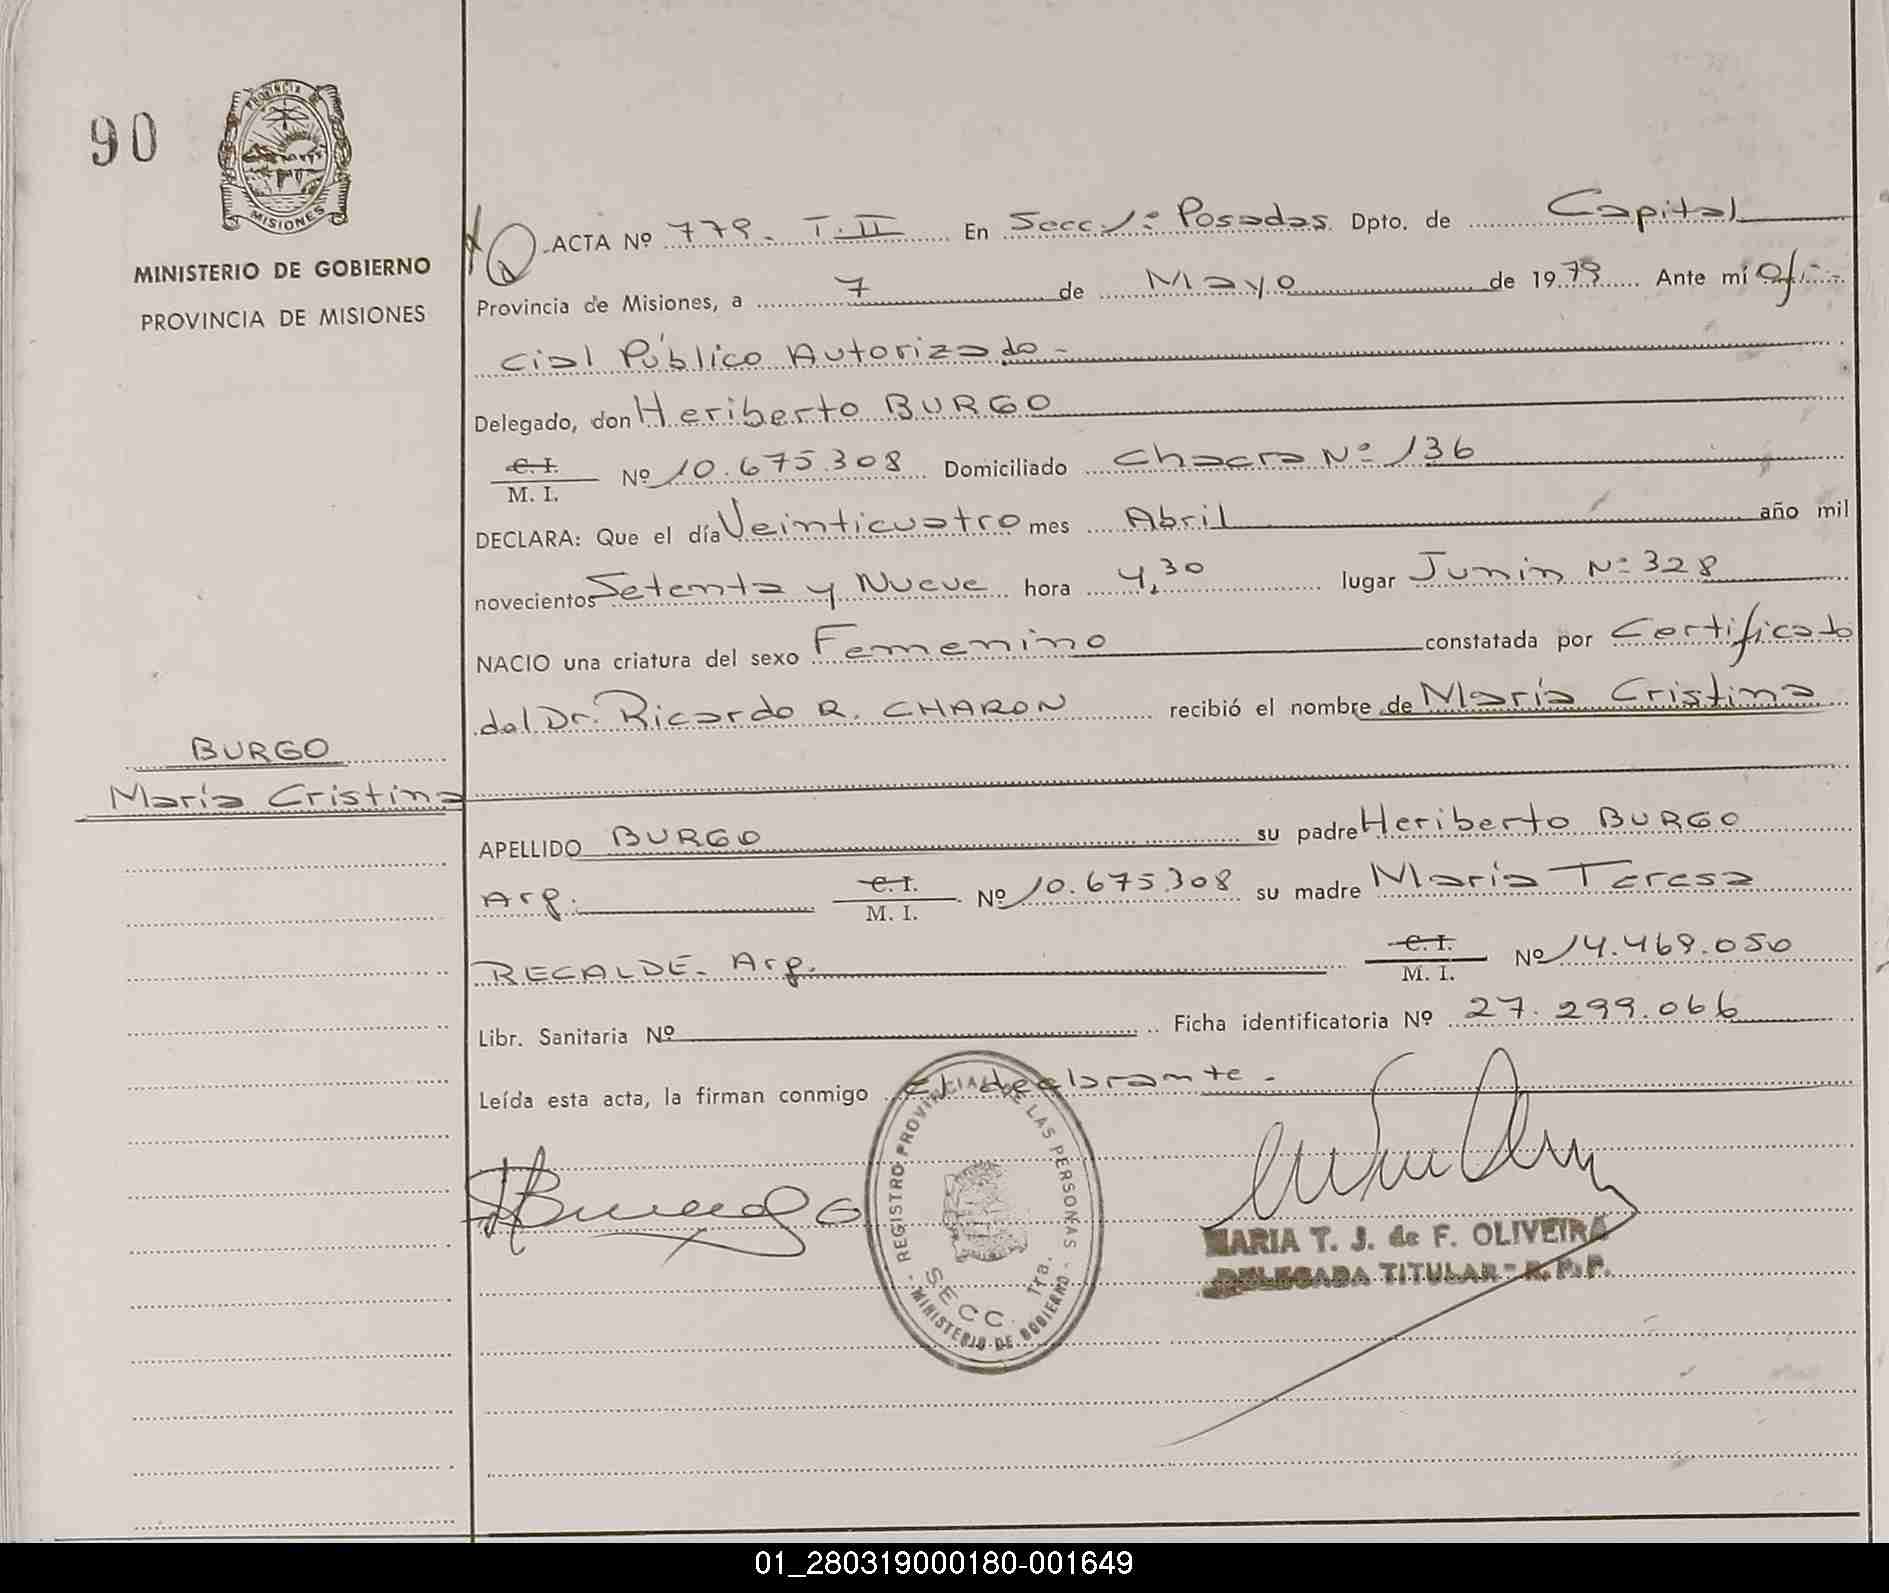 90
PROVINCIA DE
MISIONES
MINISTERIO DE GOBIERNO
PROVINCIA DE MISIONES
ACTA Nº 779. T. II En Secc 1ª Posadas Dpto. de Capital
Provincia de Misiones, a 7 de Mayo de 1979 Ante mí Ofi-
cial Público Autorizado-
Delegado, don Heriberto BURGO
C. I.
M. I. Nº 10.675.308 Domiciliado Chacra Nº 136
DECLARA: Que el día Veinticuatro mes Abril año mil
novecientos Setenta y Nueve hora 4,30 lugar Junin Nº 328
NACIO una criatura del sexo Femenino constatada por Certificado
del Dr. Ricardo R. CHARON recibió el nombre de María Cristina
BURGO
María Cristina
APELLIDO BURGO su padre Heriberto BURGO
Arg. C. I. M. I. Nº 10.675.308 su madre María Teresa
RECALDE. Arg. C. I. M. I. Nº 14.469.050
Libr. Sanitaria Nº Ficha identificatoria Nº 27.299.066
Leída esta acta, la firman conmigo el declarante.
REGISTRO PROVINCIAL DE LAS PERSONAS
SECC. 1ra.
MINISTERIO DE GOBIERNO
MARIA T. J. de F. OLIVEIRA
DELEGADA TITULAR - R. P. P.
01_280319000180-001649